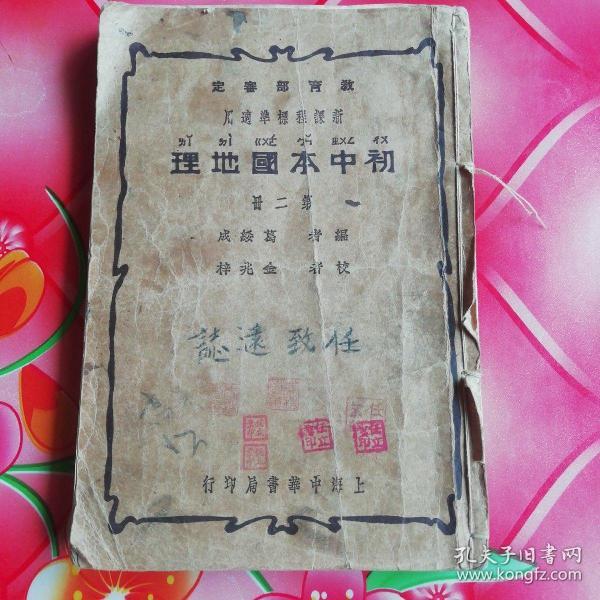 教育部審定
新課程標準適用
初中本國地理
第二冊
編者 葛綏成
校者 金兆梓
任致遠誌
上海中華書局印行
孔夫子旧书网
www.kongfz.com